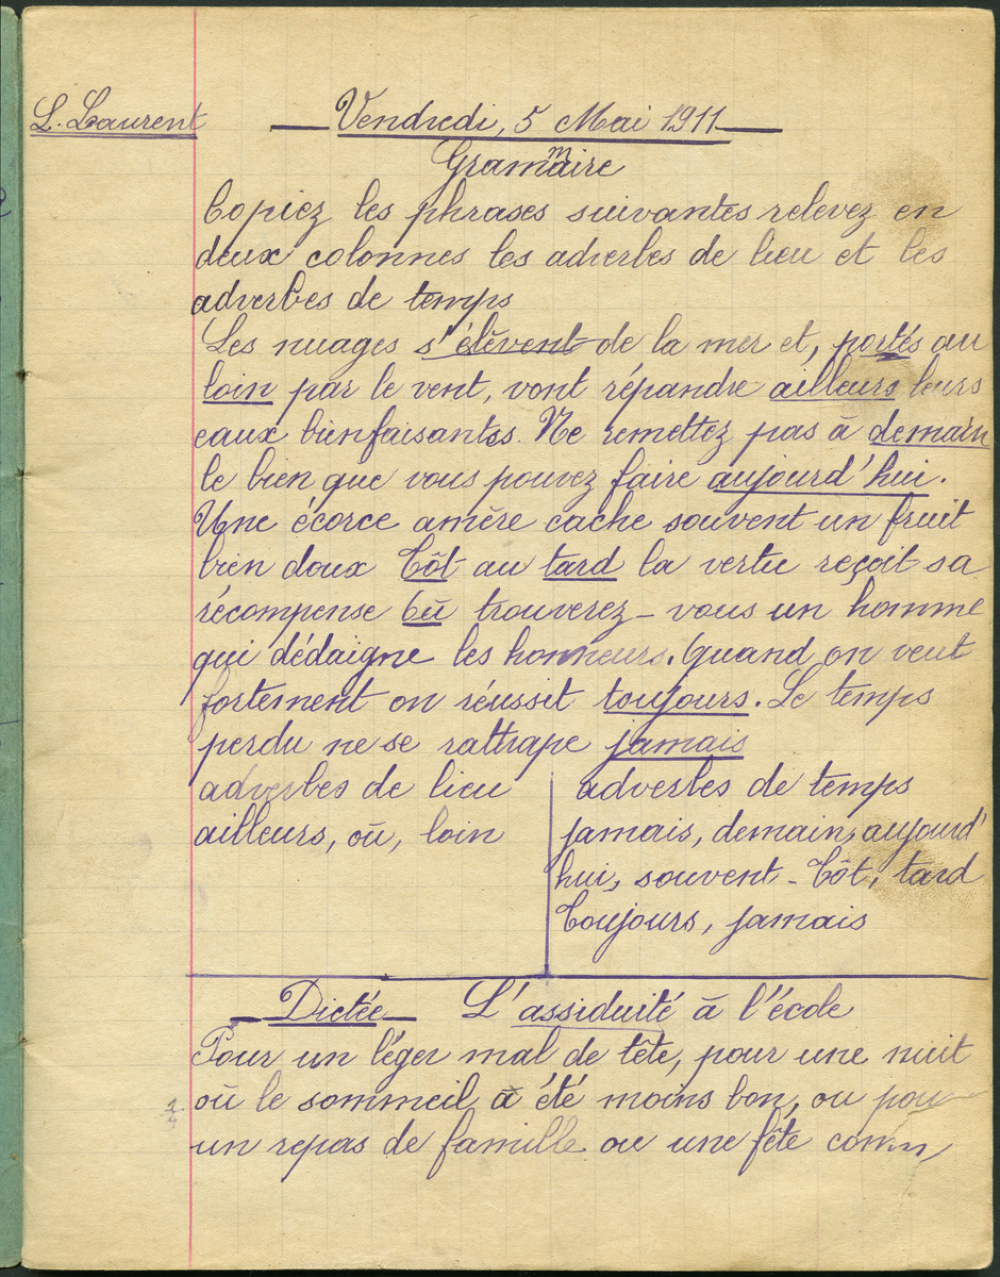 L. Laurent
Vendredi, 5 Mai 1911
Grammaire
Copiez les phrases suivantes relevez en
deux colonnes les adverbes de lieu et les
adverbes de temps
Les nuages s'élèvent de la mer et, portés au
loin par le vent, vont répandre ailleurs leurs
eaux bienfaisantes. Ne remettez pas à demain
le bien que vous pouvez faire aujourd'hui.
Une écorce amère cache souvent un fruit
bien doux Tôt au tard la vertu reçoit sa
récompense Où trouverez-vous un homme
qui dédaigne les honneurs. Quand on veut
fortement on réussit toujours. Le temps
perdu ne se rattrape jamais
adverbes de lieu
ailleurs, où, loin
adverbes de temps
jamais, demain, aujourd'
hui, souvent - Tôt, tard
Toujours, jamais
Dictée L'assiduité à l'école
Pour un léger mal de tête, pour une nuit
où le sommeil a été moins bon, ou pour
un repas de famille ou une fête comm